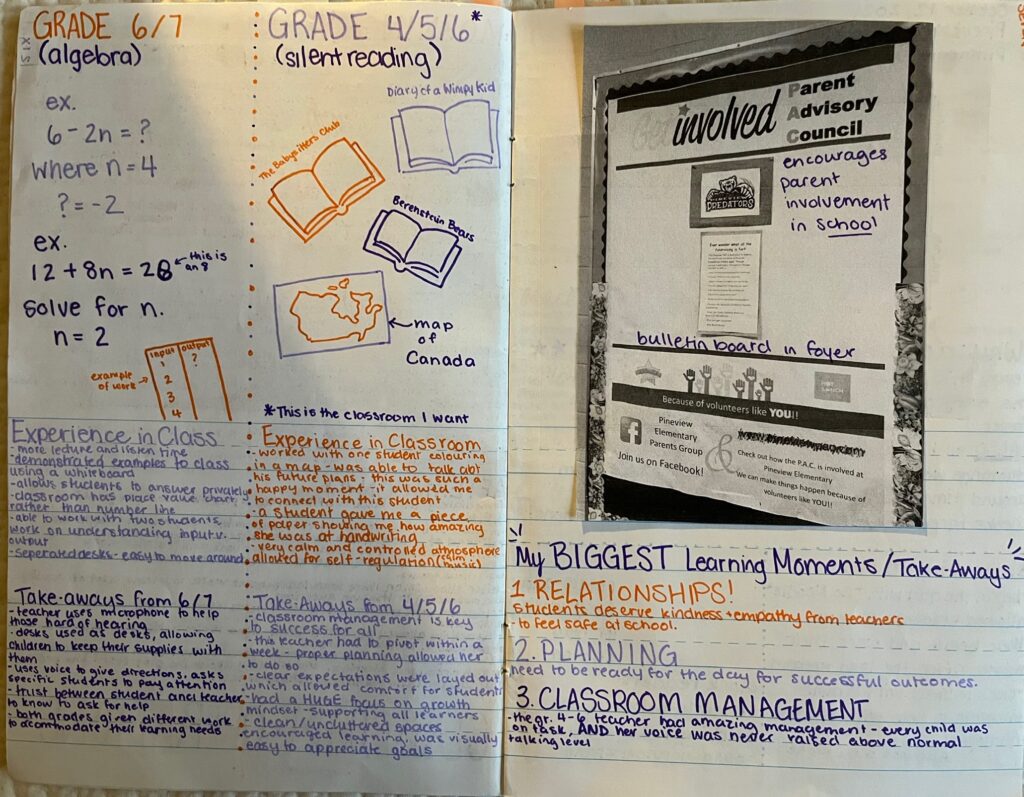 GRADE 6/7
(algebra)
ex.
6 - 2n = ?
where n = 4
? = -2
ex.
12 + 8n = 28
← this is
an 8
solve for n.
n = 2
example
of work
input output
1 ?
2
3
4
Experience in Class
- more lecture and listen time
- demonstrated examples to class
using a whiteboard
- allows students to answer privately
- classroom has place value chart
rather than number line
- able to work with two students,
work on understanding input v.
output
- seperated desks - easy to move around
Take-aways from 6/7
- teacher uses microphone to help
those hard of hearing
- desks used as desks, allowing
children to keep their supplies with
them
- uses voice to give directions, asks
specific students to pay attention
- trust between student and teacher
to know to ask for help
- both grades given different work
to accommodate their learning needs
GRADE 4/5/6*
(silent reading)
Diary of a Wimpy Kid
The Babysitters Club
Berenstein Bears
← map
of
Canada
*This is the classroom I want
Experience in Classroom
- worked with one student colouring
in a map - was able to talk abt
his future plans - this was such a
happy moment - it allowed me
to connect with this student
- a student gave me a piece
of paper showing me how amazing
she was at handwriting
- very calm and controlled atmosphere
allowed for self-regulation (calm
music)
Take-Aways from 4/5/6
- classroom management is key
to success for all
- this teacher had to pivot within a
week - proper planning allowed her
to do so
- clear expectations were layed out
which allowed comfort for students
- had a HUGE focus on growth
mindset - supporting all learners
- clean/uncluttered spaces
encouraged learning, was visually
easy to appreciate goals
Get involved
Parent
Advisory
Council
PINEVIEW
PREDATORS
encourages
parent
involvement
in school
bulletin board in foyer
HOT
LUNCH
Because of volunteers like YOU!!
Pineview
Elementary
Parents Group
Join us on Facebook!
&
Check out how the P.A.C. is involved at
Pineview Elementary
We can make things happen because of
volunteers like YOU!!
My BIGGEST Learning Moments/Take-Aways
1 RELATIONSHIPS!
students deserve kindness + empathy from teachers
to feel safe at school.
2. PLANNING
need to be ready for the day for successful outcomes.
3. CLASSROOM MANAGEMENT
- the gr. 4-6 teacher had amazing management - every child was
on task, AND her voice was never raised above normal
talking level